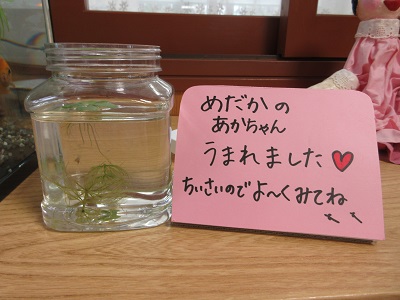 めだかの
あかちゃん
うまれました♥
ちいさいのでよ〜くみてね